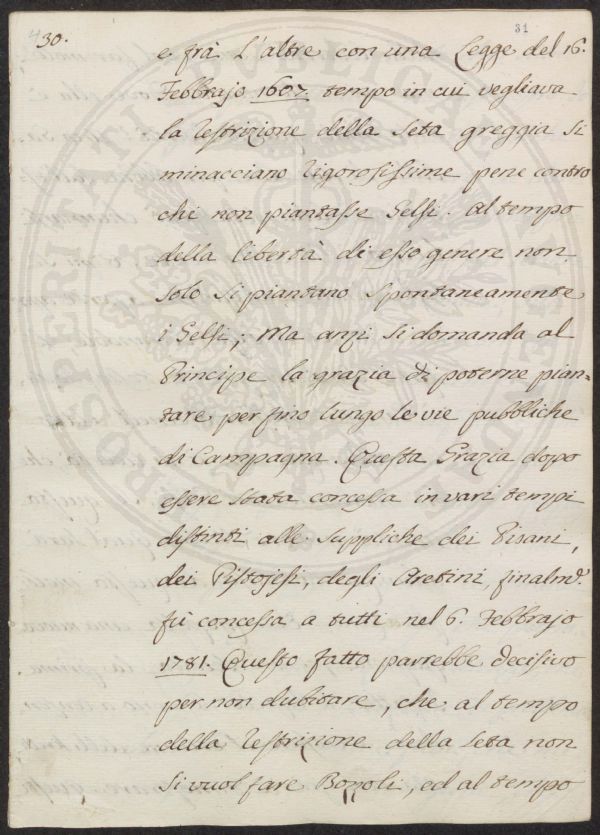 430.
31
e frà L'altre con una Legge del 16.
Febbrajo 1607. tempo in cui vegliava
la restrizione della seta greggia si
minacciano rigorosissime pene contro
chi non piantasse Gelsi. al tempo
della libertà di esso genere non
solo si piantano spontaneamente
i Gelsi; Ma anzi si domanda al
Principe la grazia di poterne pian=
tare per fino lungo le vie pubbliche
di Campagna. Questa Grazia dopo
essere stata concessa in vari tempi
distinti alle suppliche dei Pisani,
dei Pistojesi, degli Aretini, finalm.e
fù concessa a tutti nel 6. Febbrajo
1781. Questo fatto parrebbe decisivo
per non dubitare, che al tempo
della restrizione della seta non
si vuol fare Bozzoli, ed al tempo